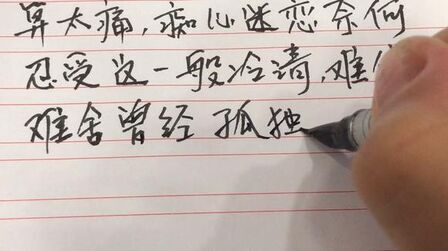 算太痛，痴心迷恋奈何
忍受这一般冷清，难
难舍曾经孤独